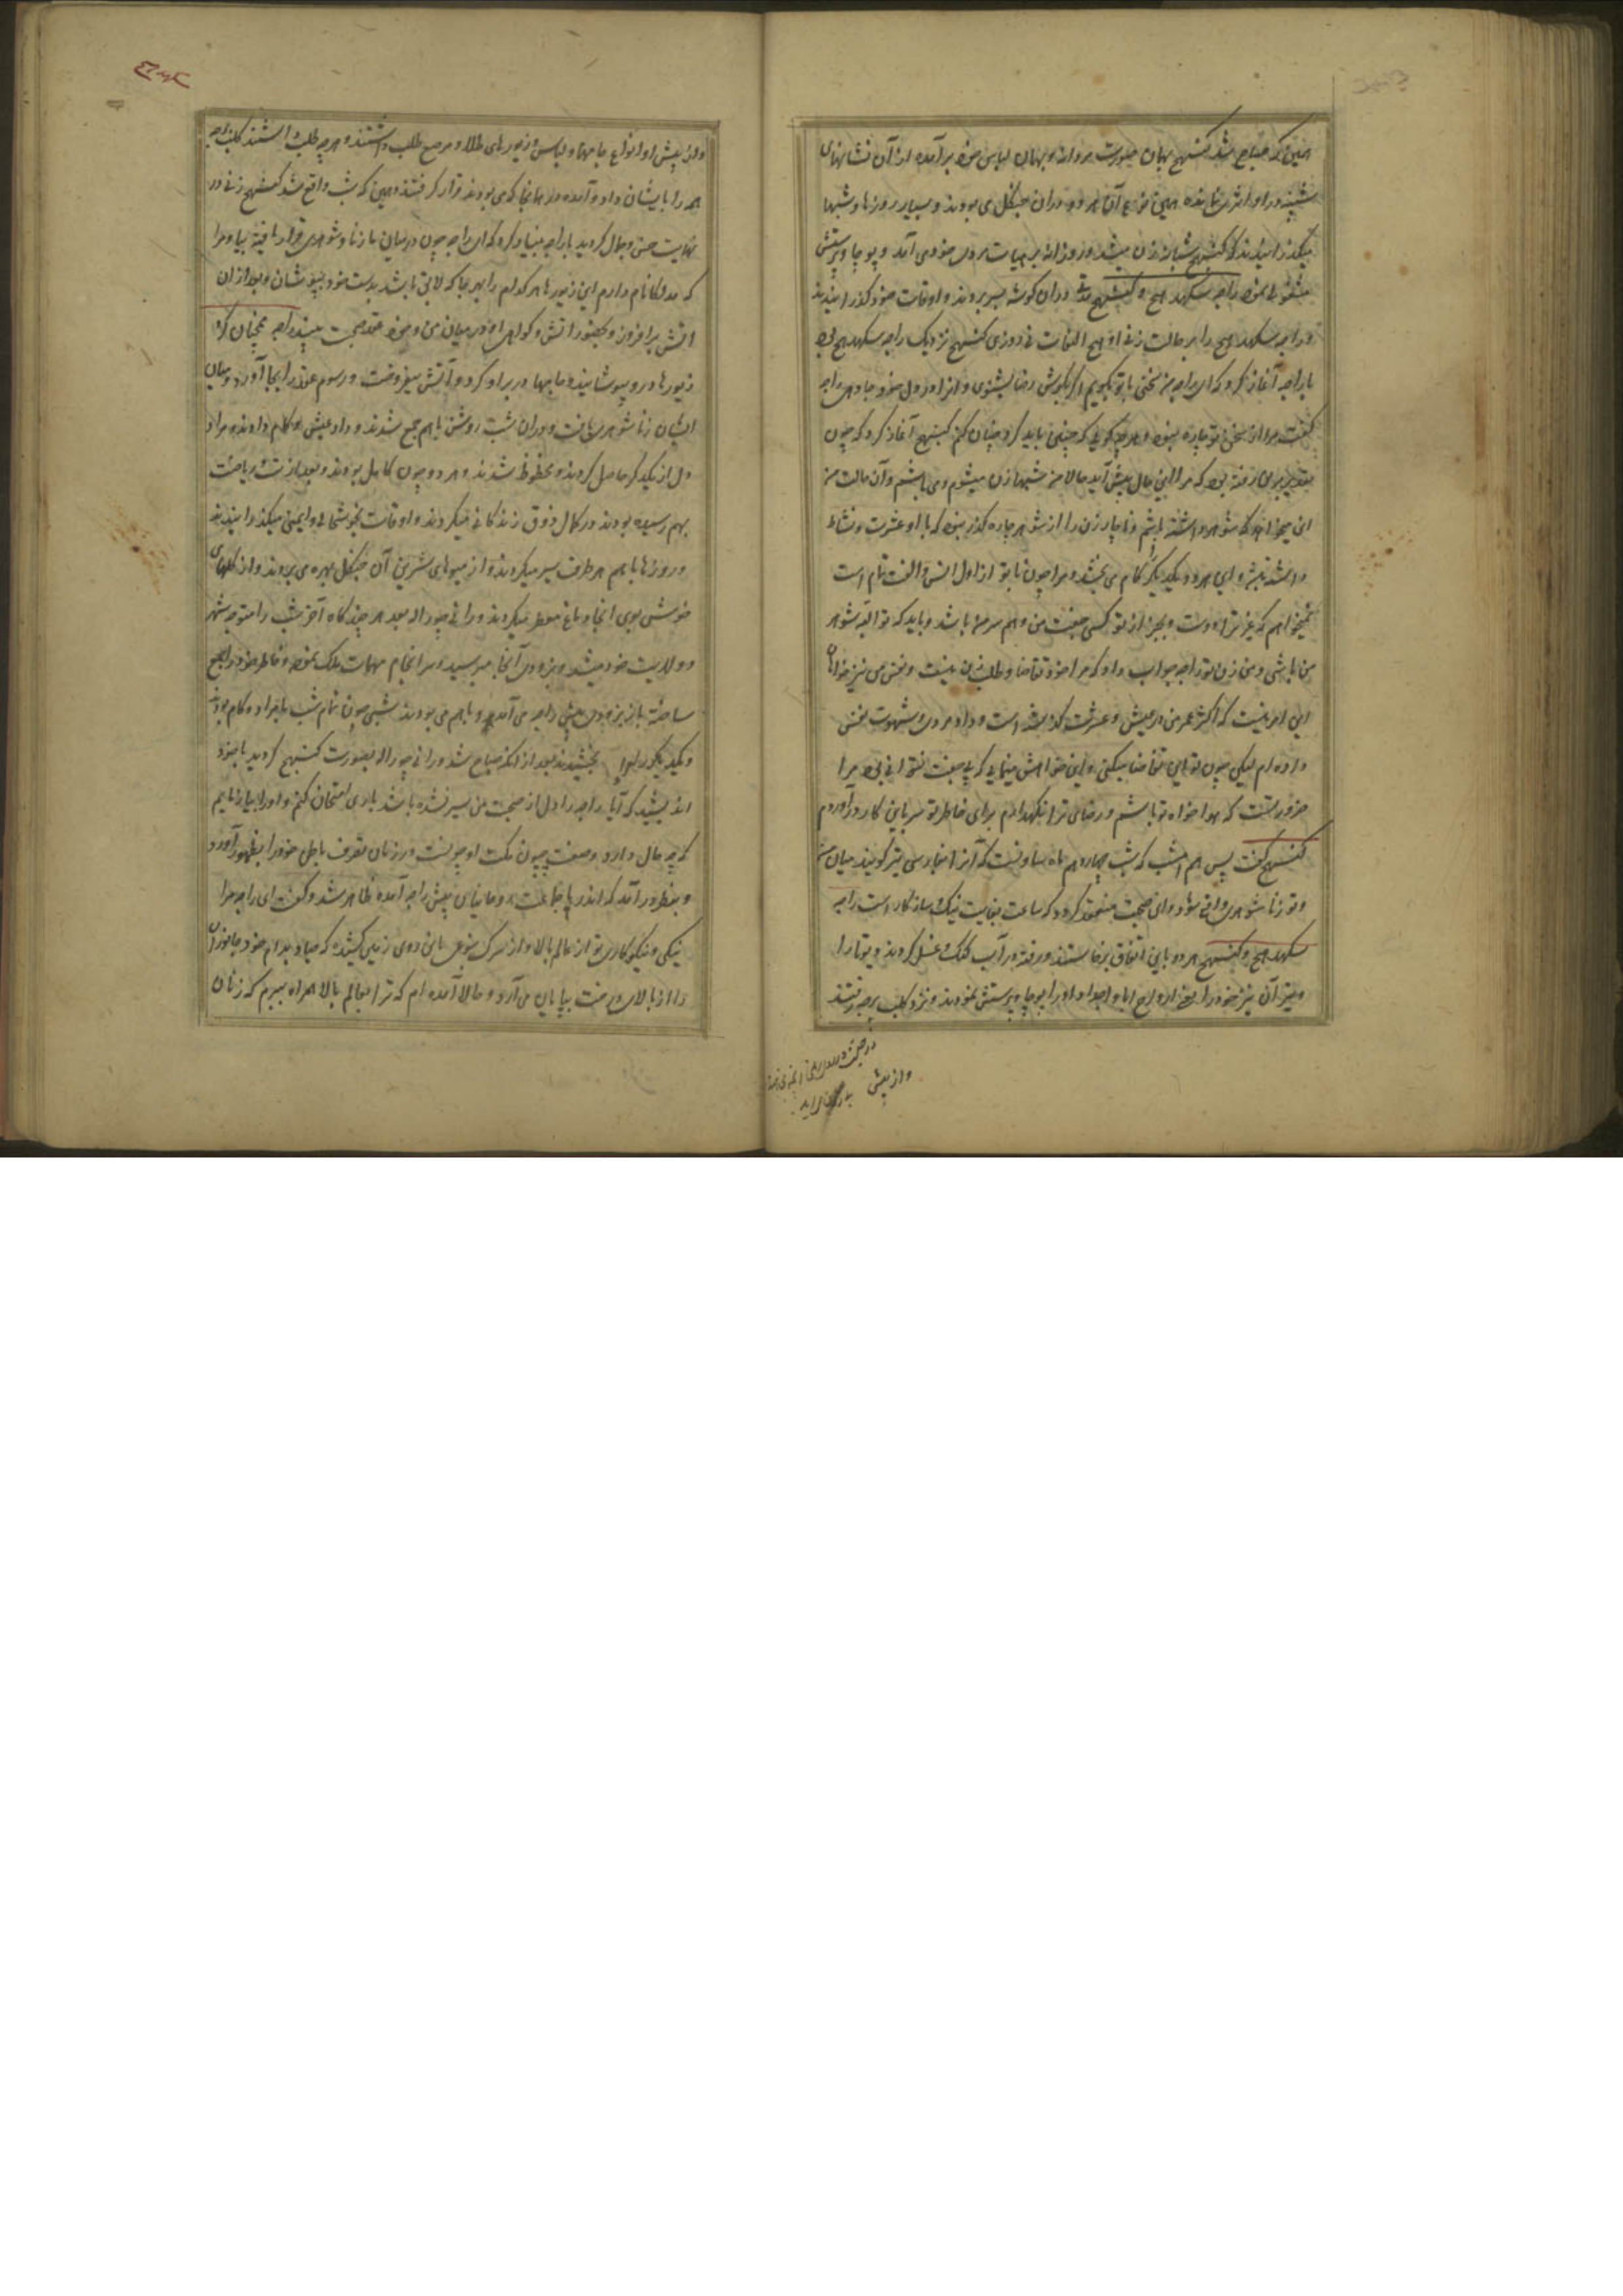 همین که صباح شد کنبهج بهمان صورت مردانه و بهمان لباس خود برآمده از آن نشانهای
شبینه در او اثری نمانده همین نوع آن هر دو دران جنگل می بودند و بسیار روزها و شبها
میگذرانیدند که کنبهج شبانه زن میشد و روزانه بر هیات مردی خود می آمد و پوجا و پرستش
مشغولی نمود راجه سکهدهج و کنبهج مدتی دران گوشه بسر بردند و اوقات خود گذرانیدند
و راجه سکهدهج را بر حالت زنی او هیچ التفات نی روزی کنبهج نزدیک راجه سکهدهج بود
با راجه آغاز کرد که ای راجه من سخنی با تو بگویم اگر بگوش رضا بشنوی و انرا در دل خود جا دهی راجه
گفت مرا از سخن تو چاره نبود و هرچه گویی که چنین باید کرد چنان کنم کنبهج آغاز کرد که چون
تقدیر برین رفته بود که مرا این حال پیش آید حالا من شبها زن میشوم و می باشم و آن حالت من
این میخواهد که شوهر داشته باشم و ناچار زن را از شوهر چاره نبود که با او عشرت و نشاط
داشته باشد و این هر دو بیکدیگر کام می بخشد و مرا چون با تو از اول انس و الفت تمام است
نمیخواهم که غیر ترا دوست و بجز از تو کسی جفت من و هم سر من باشد و باید که تو البته شوهر
من باشی و من زن تو راجه جواب داد که مرا خود تقاضا و طلب زن نیست و نفس من نیز خواهان
این امر نیست که اکثر عمر من در عیش و عشرت گذشته است و داد مردی و شهوت نفس
داده ام لیکن چون تو این تقاضا میکنی و این خواهش مینمایی که بی جفت نتوانی بود مرا
ضرورتست که هواخواه تو باشم و رضای ترا نگهدارم برای خاطر تو سر باین کار در آوردم
کنبهج گفت پس هم امشب که شب چهاردهم ماه ساونست که آنرا بفارسی تیر گویند میان من
و تو زناشوهری واقع شود و این صحبت منعقد گردد که ساعت بغایت نیک و سازگار است راجه
سکهدهج و کنبهج هر دو باین اتفاق برخاستند و رفته در آب گنگ غسل کردند و دیوتا را
و پتران نیز خود را یعنی ارواح ابا و اجداد او را پوجا و پرستش نمودند و نزد کلپ برچه رفتند
و از پیش
و از پیش او انواع جامها و لباس و زیورهای طلا و مرصع طلب داشتند و هرچه طلب داشتند کلپ برچه
همه را بایشان داد و آمده در همانجا که می بودند قرار گرفتند و همین که شب واقع شد کنبهج زنی در
نهایت حسن و جمال گردید با راجه بنیاد کرد که ای راجه چون درمیان ما زناشوهری قرار یافته بیا و مرا
که مدلکا نام دارم این زیورها هر کدام را بهر جا که لایق باشد بدست خود بپوشان و بعد ازان
آتش برافروز و بحضور آتش و گواهی او درمیان من و خود عقد صحبت ببند راجه همچنان کرد
زیورها درو پوشانید و جامها در بر او کرد و آتش بیفروخت و رسوم عقد را بجا آورد و میان
ایشان زناشوهری یافت و دران شب روشن باهم جمع شدند و داد عیش و کام دادند و مراد
دل از یکدیگر حاصل کردند و محظوظ شدند و هر دو چون کامل بودند و بعد از تپ و ریاضت
بهم رسیده بودند در کمال ذوق زندگانی میکردند و اوقات بخوشحالی و ایمنی میگذرانیدند
و روزها باهم هر طرف سیر میکردند و از میوهای شیرین آن جنگل بهره می بردند و از گلهای
خوش بوی انجا دماغ معطر میکردند و رانی چوراله بعد هر چندگاه آخر شب را متوجه شهر
و ولایت خود میشد و بزودی آنجا میرسید و سرانجام مهمات ملک نموده و خاطر خود را جمع
ساخته باز بزودی پیش راجه می آمد و باهم می بودند شبی چون تمام شب بامراد و کام بودند
و یکدیگر را بخشیدند بعد ازانکه صباح شد و رانی چوراله بصورت کنبهج گردید با خود
اندیشید که آیا راجه را دل از صحبت من سیر نشده باشد باری امتحان کنم و او را بیازمایم
که چه حال دارد و صفت چون مکت او چونست در زمان تصرف باطن خود را بظهور آورد
و بنظر درآمد که اندر با جماعت روحانیان پیش راجه آمده ظاهر شد و گفت ای راجه مرا
نیکی و نیکوکاری تو از عالم بالا و از سرگ بنوعی باین روی زمین کشیده که صیاد بدام خود جانوران
را از بالای درخت بپایان می آرد و حالا آمده ام که ترا بعالم بالا همراه ببرم که زنان